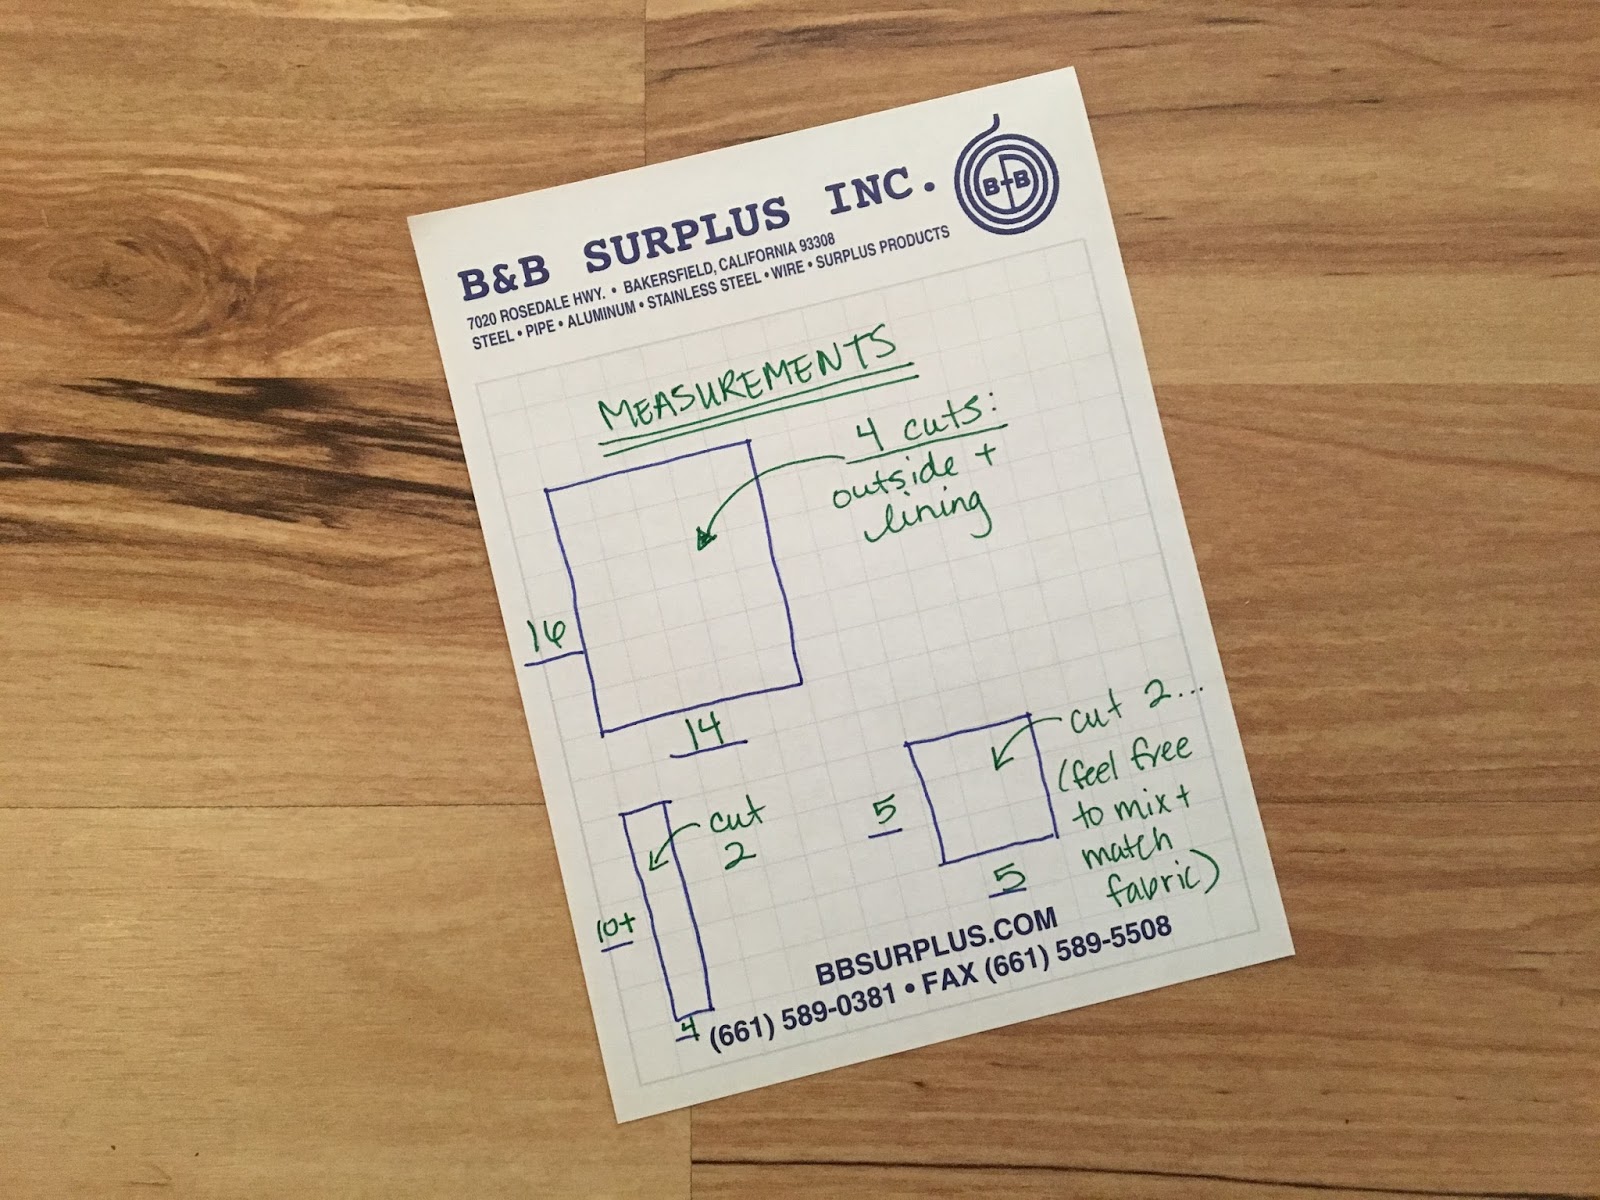 B&B SURPLUS INC.
B&B
7020 ROSEDALE HWY. • BAKERSFIELD, CALIFORNIA 93308
STEEL • PIPE • ALUMINUM • STAINLESS STEEL • WIRE • SURPLUS PRODUCTS
MEASUREMENTS
4 cuts:
outside +
lining
16
14
cut
2
10+
4
cut 2...
(feel free
to mix +
match
fabric)
5
5
BBSURPLUS.COM
(661) 589-0381 • FAX (661) 589-5508